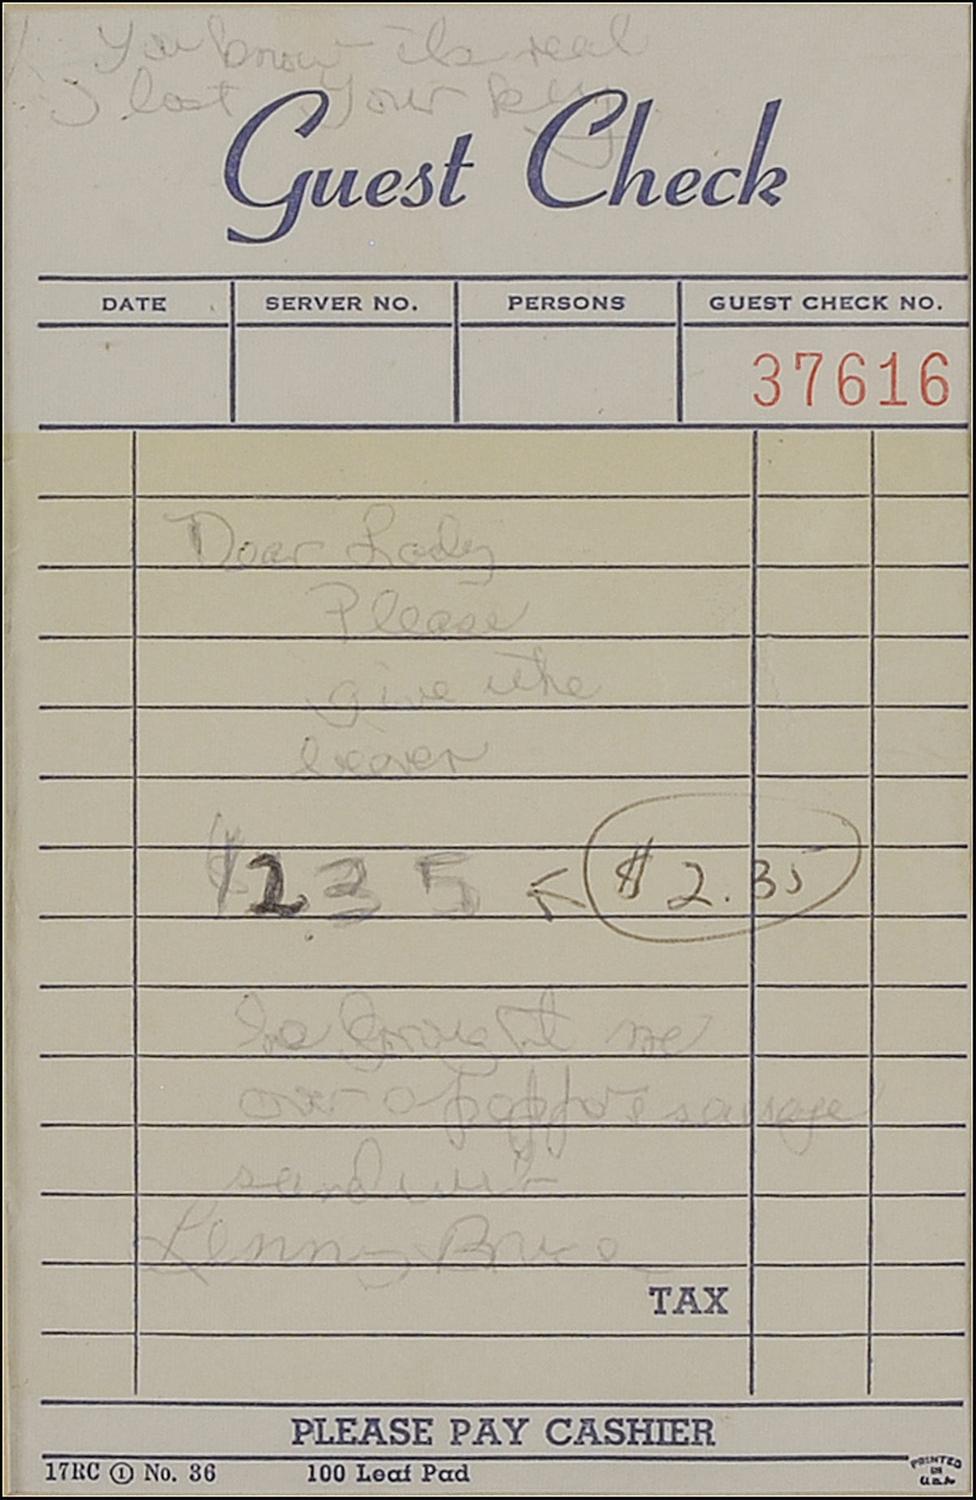 You know its real
I lost your key
Guest Check
DATE SERVER NO. PERSONS GUEST CHECK NO.
37616
Dear Lady
Please
give the
bearer
$2.35 ← $2.35
he brought me
over a sausage
sandwich
Lenny Bruce
TAX
PLEASE PAY CASHIER
17RC ① No. 36 100 Leaf Pad
PRINTED
IN
U.S.A.